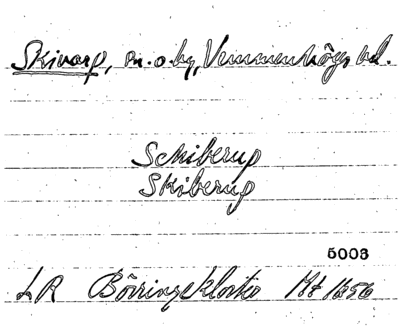 Skivarp, sn. o. by, Vemmenhögs hd.
Schiberup
Skiberup
5003
LR Börringekloster Mt 1650